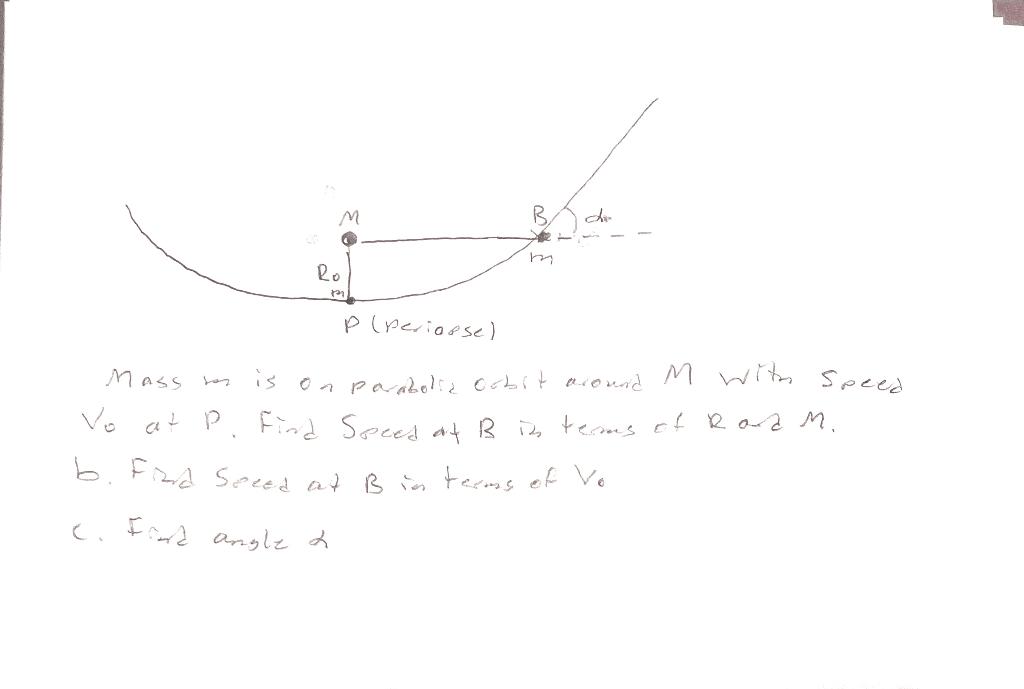 M
B
α
R₀
m
m
P (periapse)
Mass m is on parabolic orbit around M with speed
V₀ at P. Find Speed at B in terms of R and M.
b. Find Speed at B in terms of V₀
c. Find angle α